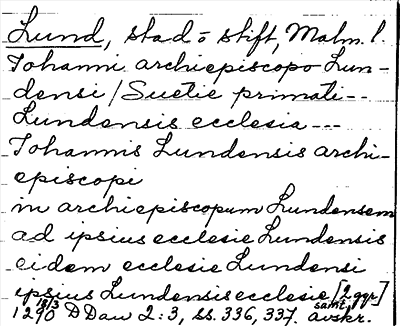 Lund, stad = stift, Malm. l.
Johanni archiepiscopo Lun-
densi / Suetie primati --
Lundensis ecclesia ---
Johannis Lundensis archi-
episcopi
in archiepiscopum Lundensem
ad ipsius ecclesie Lundensis
eidem ecclesie Lundensi
ipsius Lundensis ecclesie [2 ggr]
1290 18/3 DDan 2:3, ss. 336, 337. samt. avskr.